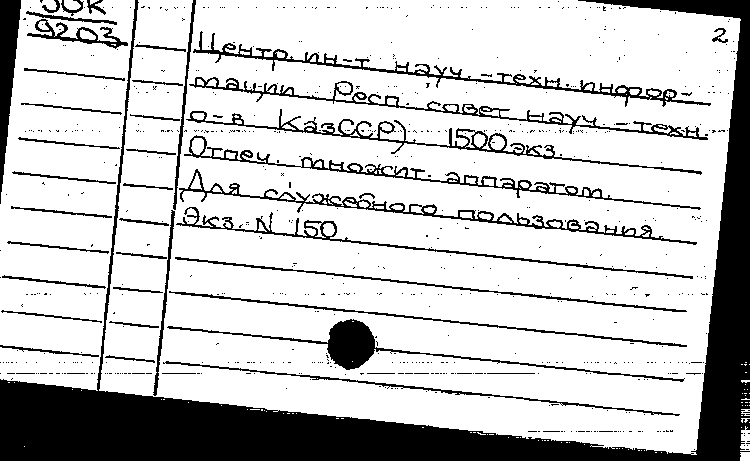 2
9203
Центр. ин-т науч.-техн. инфор-
мации. Респ. совет науч.-техн.
о-в КазССР). 1500 экз.
Отпеч. множит. аппаратом.
Для служебного пользования.
Экз. N 150.